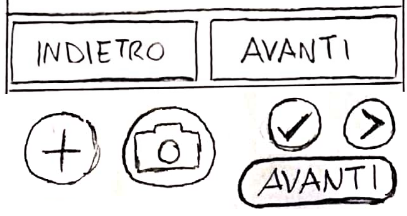 INDIETRO AVANTI
AVANTI